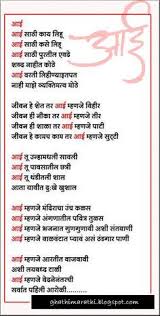 आई
आई
आई साठी काय लिहू
आई साठी कसे लिहू
आई साठी पुरतील एवढे
शब्द नाहीत कोठे
आई वरती लिहीण्याइतपत
नाही माझे व्यक्तिमत्व मोठे
जीवन हे शेत तर आई म्हणजे विहीर
जीवन ही नौका तर आई म्हणजे तीर
जीवन ही शाळा तर आई म्हणजे पाटी
जीवन हे कामच काम तर आई म्हणजे सुट्टी
आई तू उन्हामधली सावली
आई तू पावसातील छत्री
आई तू थंडीतली शाल
आता यावीत दुःखे खुशाल
आई म्हणजे मंदिराचा उंच कळस
आई म्हणजे अंगणातील पवित्र तुळस
आई म्हणजे भजनात गुणगुणावी अशी संतवाणी
आई म्हणजे वाळवंटात प्यावं असं थंडगार पाणी
आई म्हणजे आरतीत वाजवावी
अशी लयबद्ध टाळी
आई म्हणजे वेदनेनंतरची
सर्वात पहिली आरोळी............
ghathimarathi.blogspot.com